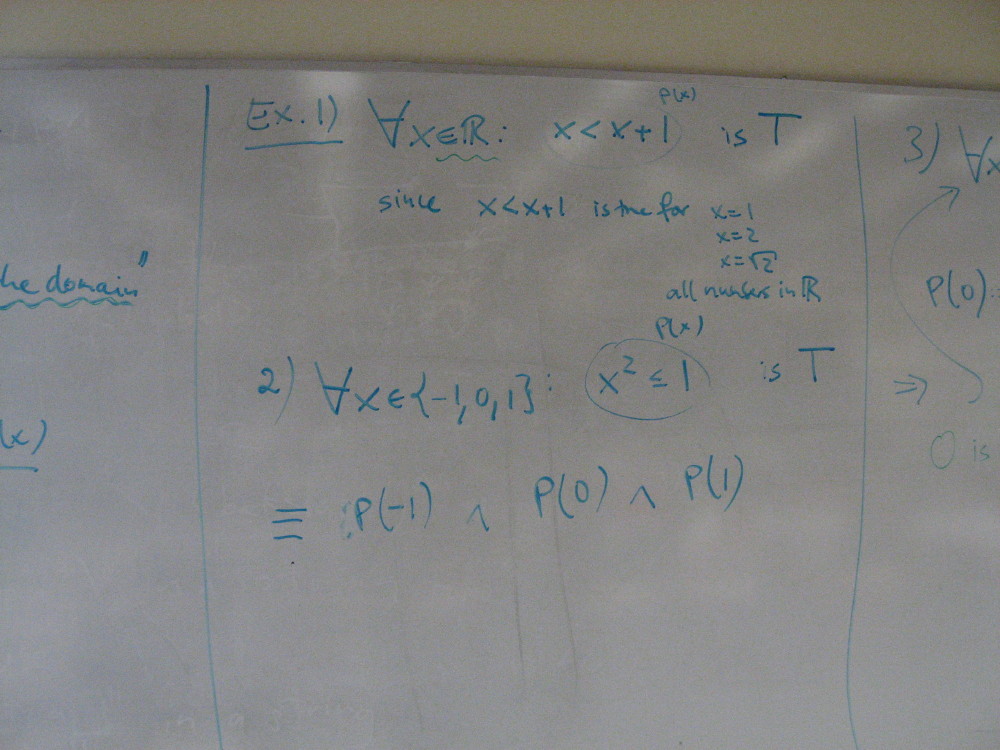 he domain"
(x)
P(x)
Ex. 1) ∀x∈ℝ: x < x+1 is T
since x<x+1 is true for x=1
x=2
x=√2
all numbers in ℝ
P(x)
2) ∀x∈{-1,0,1}: x² ≤ 1 is T
≡ P(-1) ∧ P(0) ∧ P(1)
3) ∀x
P(0)
⇒
0 is